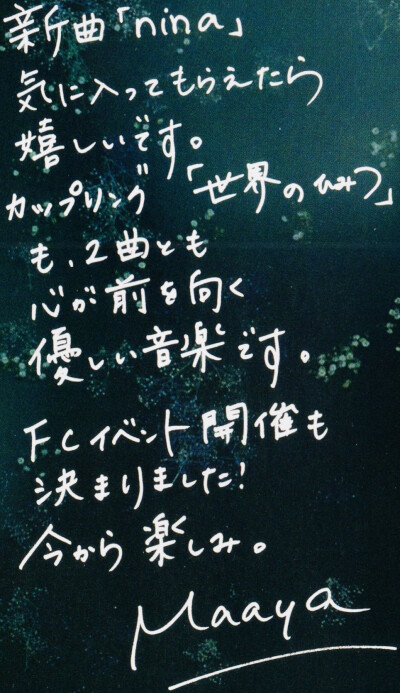 新曲「nina」
気に入ってもらえたら
嬉しいです。
カップリング「世界のひみつ」
も、2曲とも
心が前を向く
優しい音楽です。
FCイベント開催も
決まりました!
今から楽しみ。
Maaya